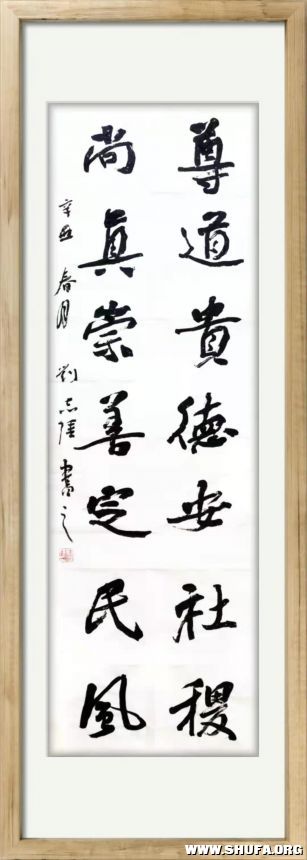 尊道貴德安社稷
尚真崇善定民風
辛丑春月劉志強書之
WWW.SHUFA.ORG